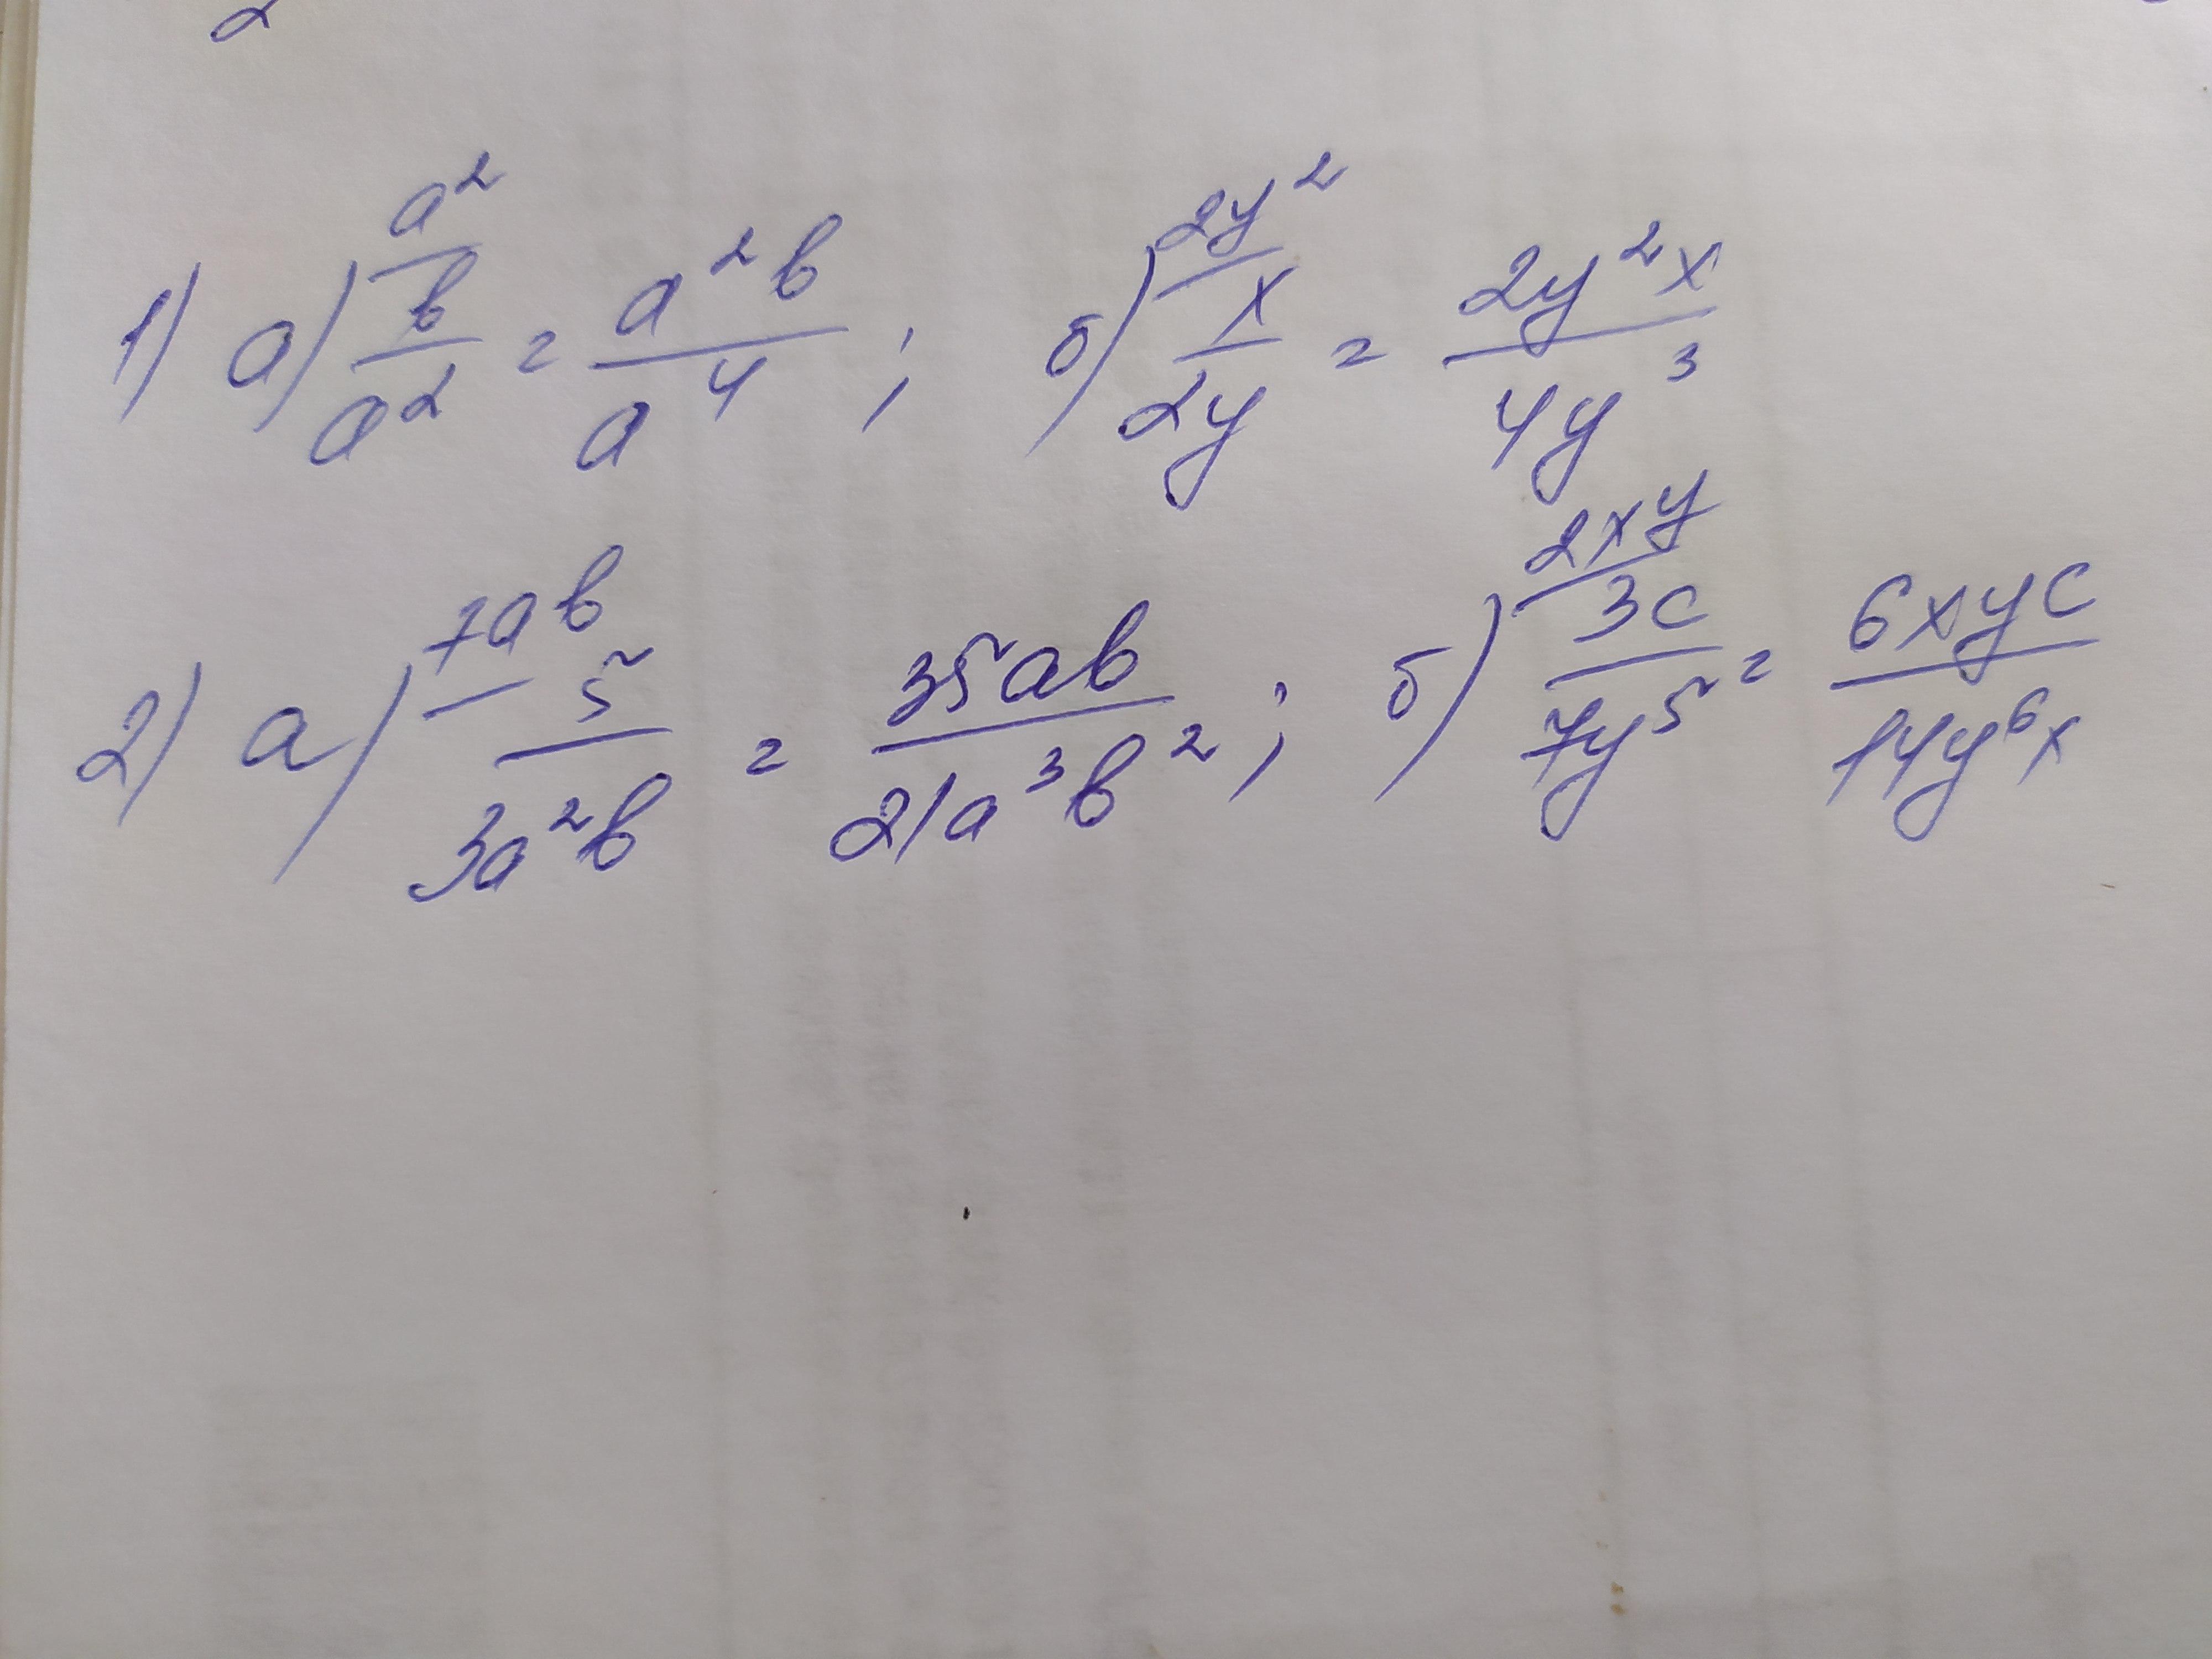 2
1) а) a² b/a² = a²b/a⁴ ; б) 2y² x/2y = 2y²x/4y³
2) а) 7ab 5/3a²b = 35ab/21a³b² ; б) 2xy 3c/7y⁵ = 6xyc/14y⁶x